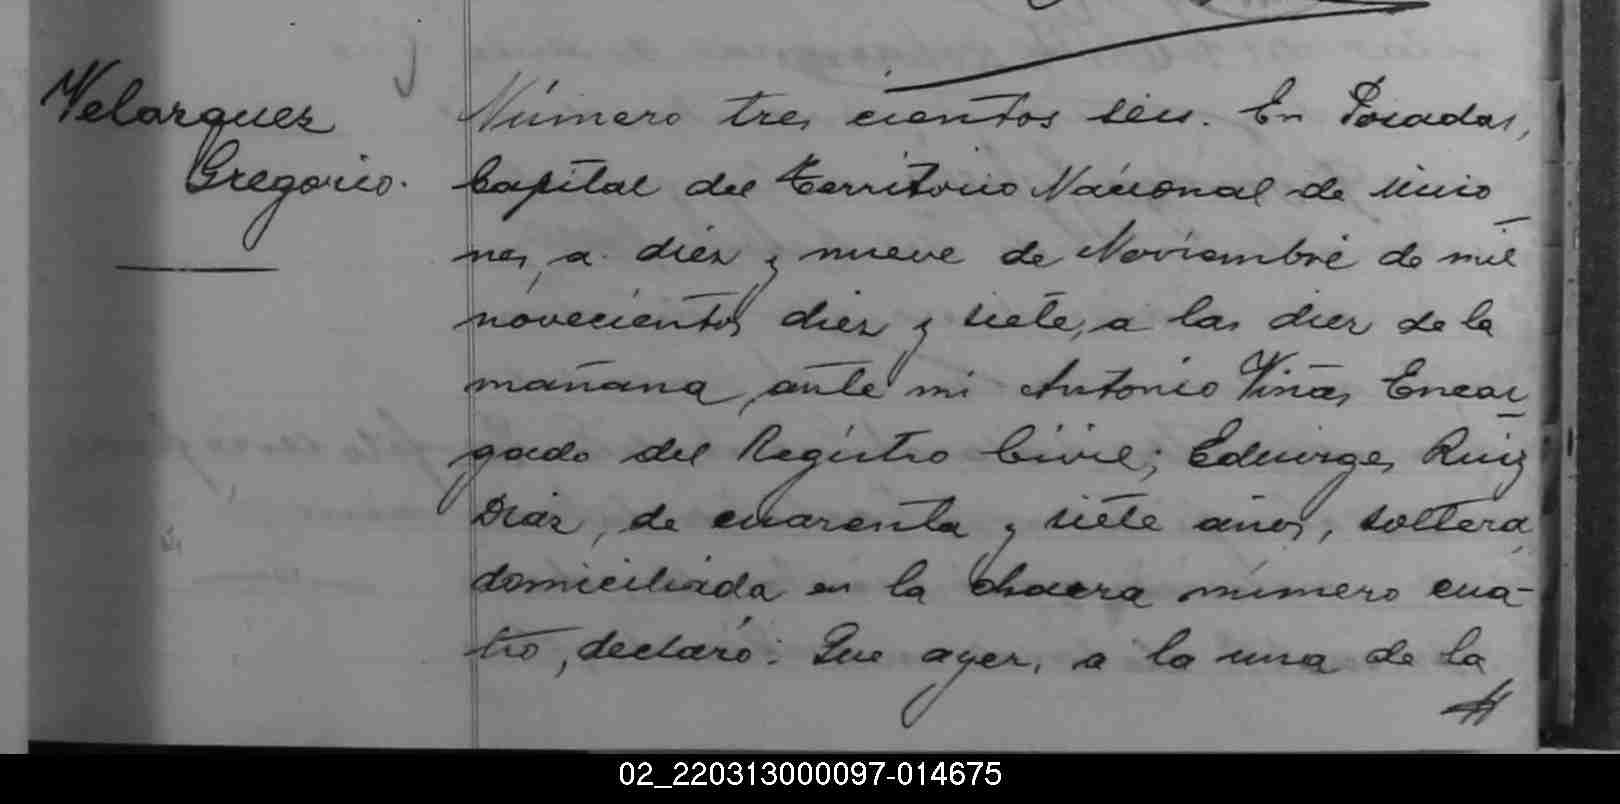 Velazquez
Gregorio.
Número tres cientos seis. En Posadas,
Capital del Territorio Nacional de Misio
nes, a diez y nueve de Noviembre de mil
novecientos diez y siete, a las diez de la
mañana, ante mi Antonio Viñas, Encar
gado del Registro Civil; Eduviges Ruiz
Diaz, de cuarenta y siete años, soltera,
domiciliada en la chacra número cua-
tro, declaró: Que ayer, a la una de la
02_220313000097-014675